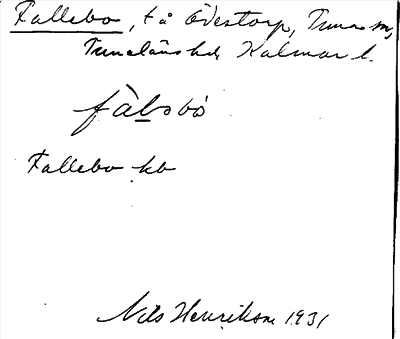 Fallebo, t å Ödestorp, Tuna sn,
Tunaläns hd, Kalmar l.
fàlsbò
Fallebo kb
Nils Henriksson 1931